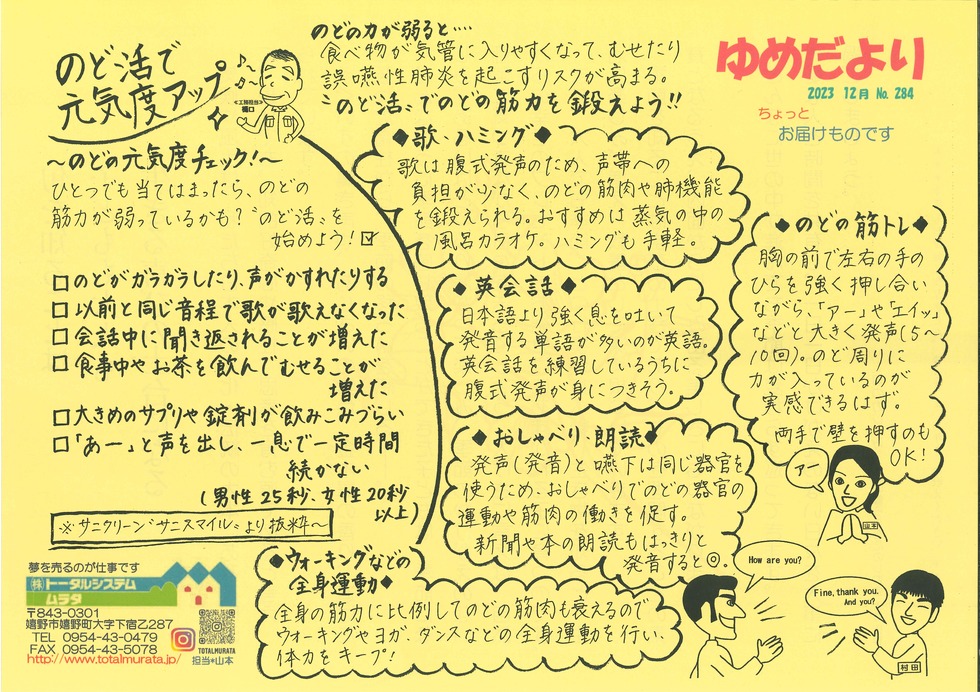 のど活で
元気度アップ
<工務担当>
樋口
のどの力が弱ると‥‥
食べ物が気管に入りやすくなって、むせたり
誤嚥性肺炎を起こすリスクが高まる。
〝のど活〟でのどの筋力を鍛えよう!!
ゆめだより
2023 12月 No. 284
ちょっと
お届けものです
～のどの元気度チェック!～
ひとつでも当てはまったら、のどの
筋力が弱っているかも?〝のど活〟を
始めよう!☑
□のどがガラガラしたり、声がかすれたりする
□以前と同じ音程で歌が歌えなくなった
□会話中に聞き返されることが増えた
□食事中やお茶を飲んでむせることが
増えた
□大きめのサプリや錠剤が飲みこみづらい
□「あー」と声を出し、一息で一定時間
続かない
(男性25秒、女性20秒
以上)
※サニクリーン〝サニスマイル〟より抜粋～
◆歌・ハミング◆
歌は腹式発声のため、声帯への
負担が少なく、のどの筋肉や肺機能
を鍛えられる。おすすめは蒸気の中の
風呂カラオケ。ハミングも手軽。
◆英会話◆
日本語より強く息を吐いて
発音する単語が多いのが英語。
英会話を練習しているうちに
腹式発声が身につきそう。
◆おしゃべり・朗読◆
発声(発音)と嚥下は同じ器官を
使うため、おしゃべりでのどの器官の
運動や筋肉の働きを促す。
新聞や本の朗読もはっきりと
発音すると◎。
◆のどの筋トレ◆
胸の前で左右の手の
ひらを強く押し合い
ながら、「アー」や「エイッ」
などと大きく発声(5～
10回)。のど周りに
力が入っているのが
実感できるはず。
両手で壁を押すのも
OK!
アー
山本
◆ウォーキングなどの
全身運動◆
全身の筋力に比例してのどの筋肉も衰えるので
ウォーキングやヨガ、ダンスなどの全身運動を行い、
体力をキープ!
How are you?
Fine, thank you.
And you?
村田
夢を売るのが仕事です
㈱トータルシステム
ムラタ
〒843-0301
嬉野市嬉野町大字下宿乙287
TEL 0954-43-0479
FAX 0954-43-5078
http://www.totalmurata.jp/
TOTALMURATA
担当*山本